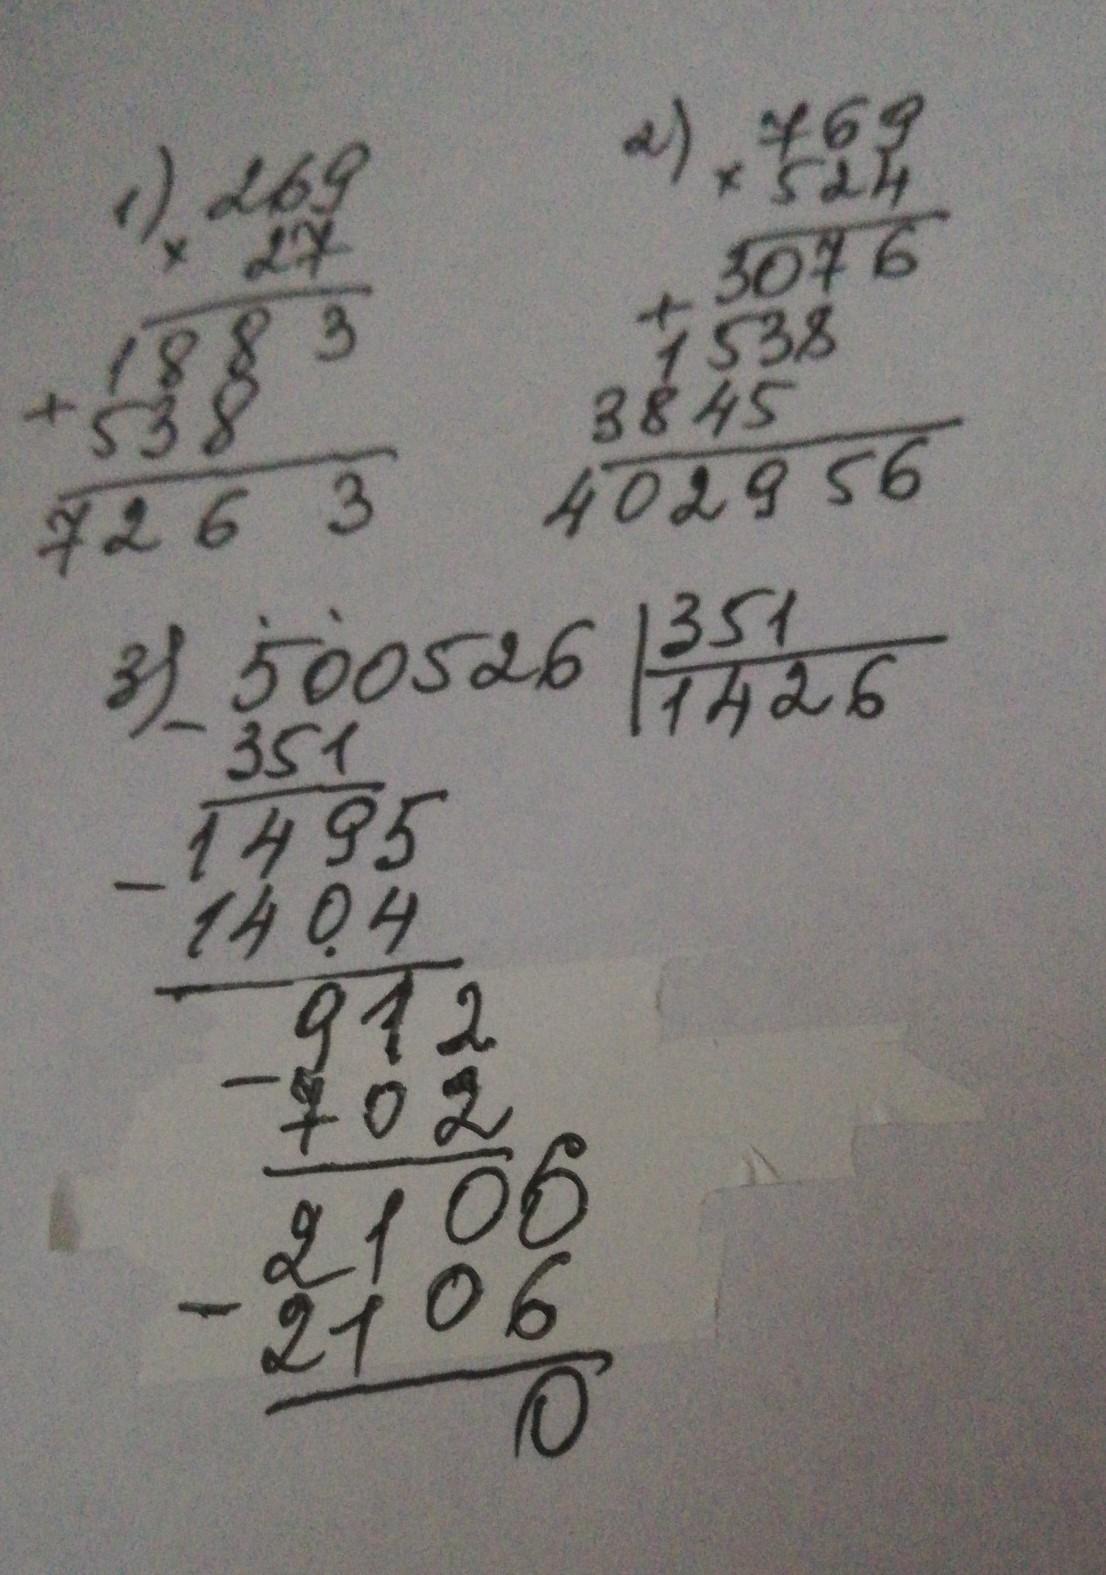 1) 269
× 27
1883
+ 538
7263
2) 769
× 524
3076
+
1538
3845
402956
3) 500526 | 351
1426
- 351
1495
- 1404
912
- 702
2106
- 2106
0